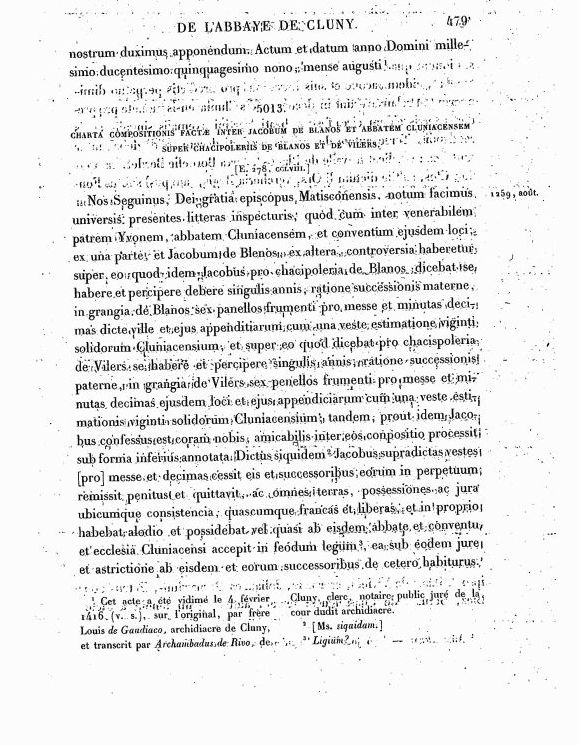 DE L'ABBAYE DE CLUNY. 479
nostrum duximus apponendum. Actum et datum anno Domini mille-
simo ducentesimo quinquagesimo nono, mense augusti.
5013.
CHARTA COMPOSITIONIS FACTÆ INTER JACOBUM DE BLANOS ET ABBATEM CLUNIACENSEM
SUPER CHACIPOLERIIS DE BLANOS ET DE VILERS.
[E. 278, CCLVIII.]
Nos Seguinus, Dei gratia episcopus Matisconensis, notum facimus 1259, août.
universis presentes litteras inspecturis, quod cum inter venerabilem
patrem Yvonem, abbatem Cluniacensem, et conventum ejusdem loci,
ex una parte, et Jacobum de Blenos, ex altera, controversia haberetur
super eo quod idem Jacobus pro chacipoleria de Blanos dicebat se
habere et percipere debere singulis annis, ratione successionis materne,
in grangia de Blanos sex panellos frumenti pro messe et minutas deci-
mas dicte ville et ejus appenditiarum, cum una veste, estimatione viginti
solidorum Cluniacensium, et super eo quod dicebat pro chacipoleria
de Vilers se habere et percipere singulis annis, ratione successionis
paterne, in grangia de Vilers sex penellos frumenti pro messe et mi-
nutas decimas ejusdem loci et ejus appendiciarum cum una veste esti-
mationis viginti solidorum Cluniacensium, tandem, prout idem Jaco-
bus confessus est coram nobis, amicabilis inter eos conpositio processit
sub forma inferius annotata. Dictus siquidem² Jacobus supradictas vestes
[pro] messe et decimas cessit eis et successoribus eorum in perpetuum,
remisit penitus et quittavit, ac omnes terras, possessiones ac jura
ubicumque consistencia, quascumque francas et liberas, et in proprio
habebat alodio et possidebat vel quasi ab eisdem abbate et conventu
et ecclesia Cluniacensi accepit in feodum legum³, ea sub eodem jure
et astrictione ab eisdem et eorum successoribus de cetero habiturus.
¹ Cet acte a été vidimé le 4 février
1416 (v. s.), sur l'original, par frère
Louis de Gaudiaco, archidiacre de Cluny,
et transcrit par Archambadus de Rivo, de
Cluny, clerc, notaire public juré de la
cour dudit archidiacre.
² [Ms. siquidam.]
³ Ligium?